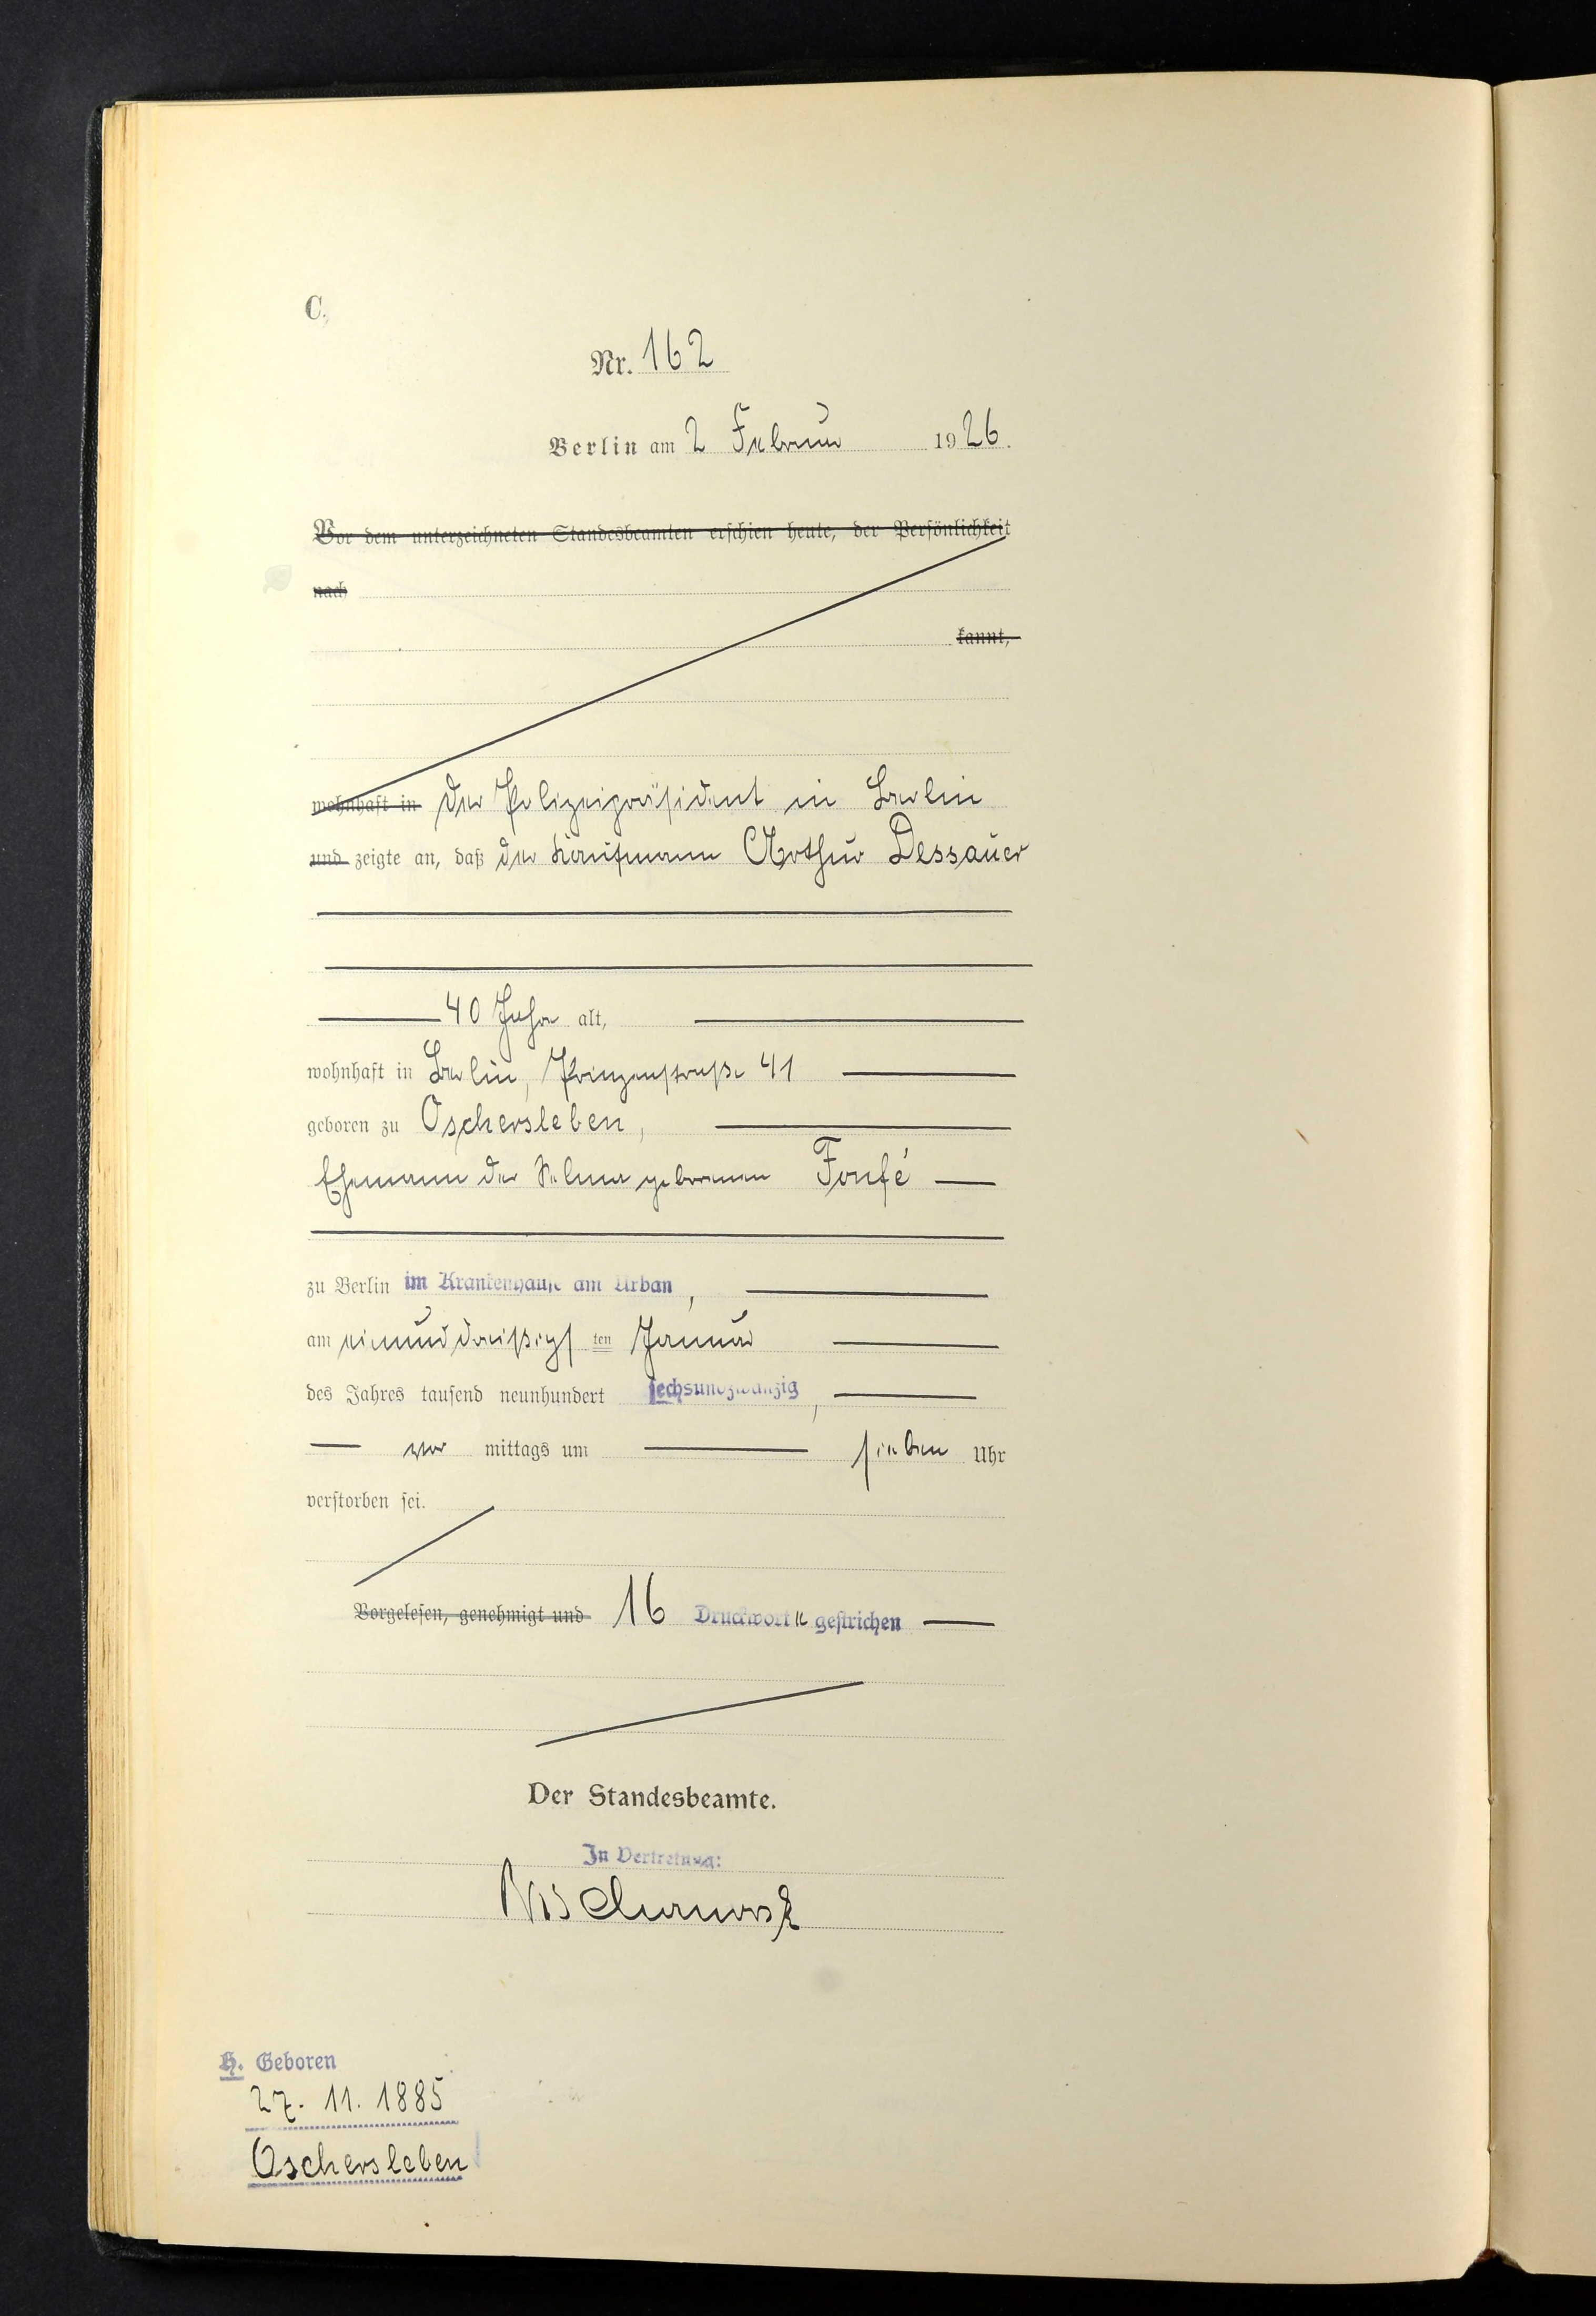 C.
Nr. 162
Berlin am 2 Februar 1926.
Vor dem unterzeichneten Standesbeamten erschien heute, der Persönlichkeit
nach
kannt,
wohnhaft in Der Polizeipräsident in Berlin
und zeigte an, daß der Kaufmann Arthur Dessauer
40 Jahre alt,
wohnhaft in Berlin, Prinzenstraße 41
geboren zu Oschersleben,
Ehemann der Selma geborenen Fonfé
zu Berlin im Krankenhause am Urban,
am einunddreißigsten Januar
des Jahres tausend neunhundert sechsundzwanzig,
vor mittags um sieben Uhr
verstorben sei.
Vorgelesen, genehmigt und 16 Druckworte gestrichen
Der Standesbeamte.
In Vertretung:
H. Geboren
27. 11. 1885
Oschersleben